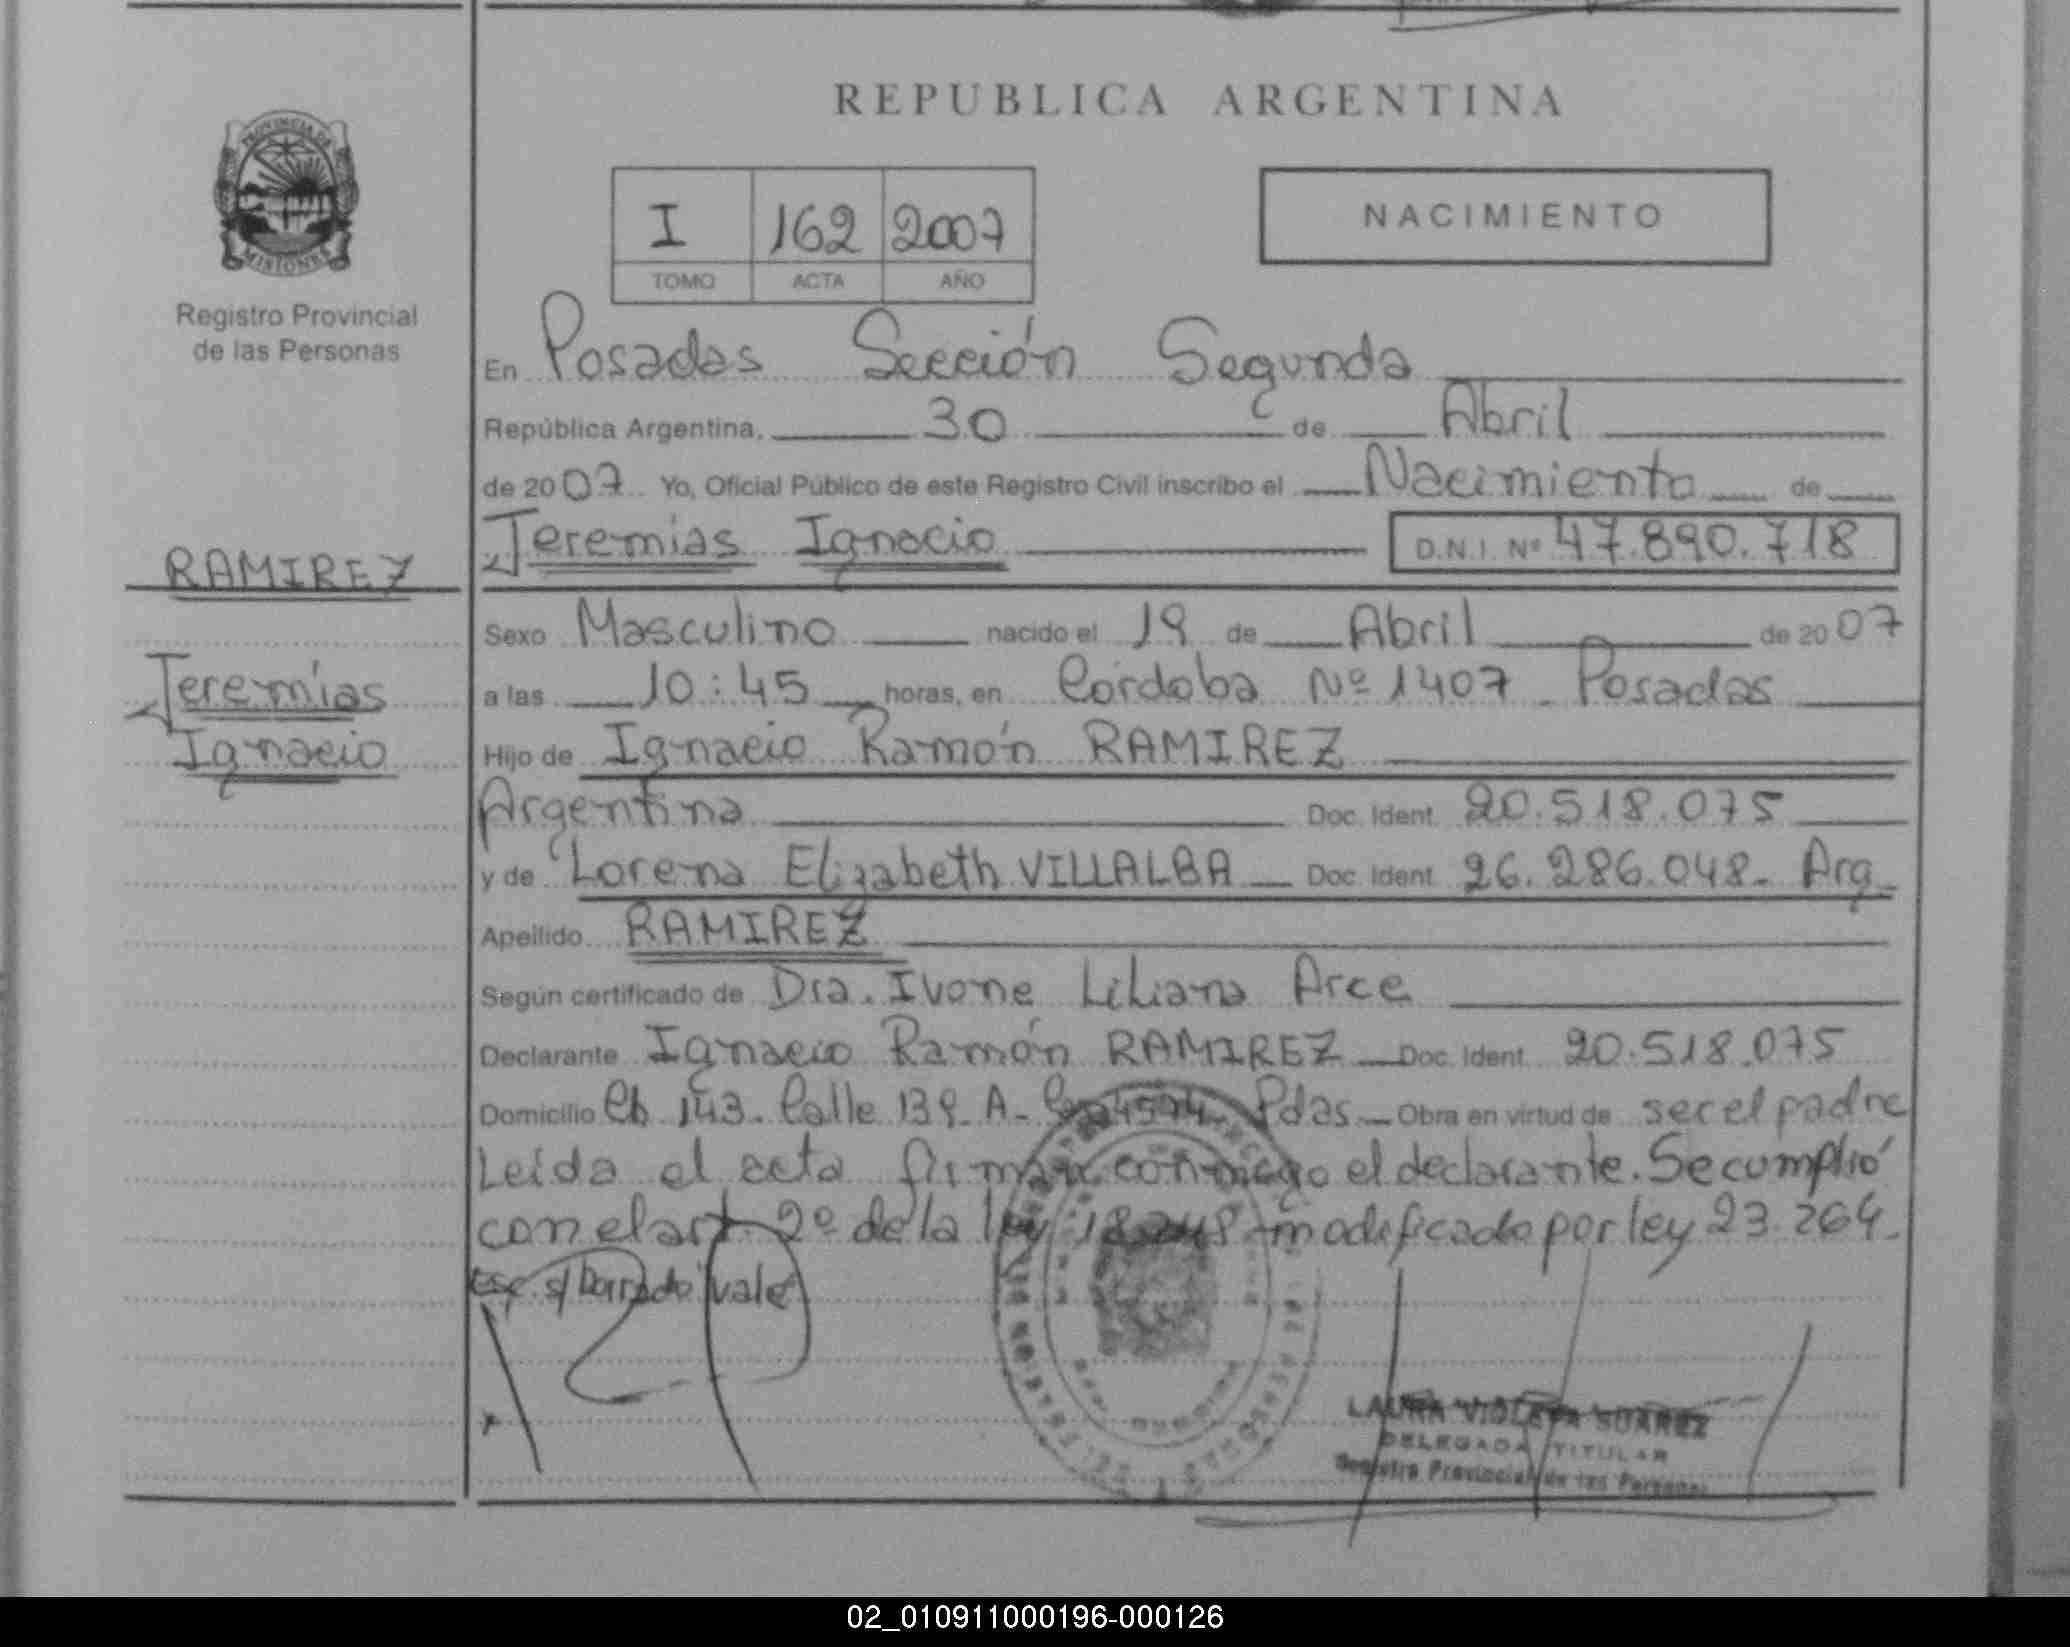 REPUBLICA ARGENTINA
PROVINCIA DE
MISIONES
Registro Provincial
de las Personas
I 162 2007
TOMO ACTA AÑO
NACIMIENTO
En Posadas Sección Segunda
República Argentina, 30 de Abril
de 2007 Yo, Oficial Público de este Registro Civil inscribo el Nacimiento de
Jeremías Ignacio D.N.I. Nº 47.890.718
RAMIREZ
Jeremías
Ignacio
Sexo Masculino nacido el 19 de Abril de 2007
a las 10:45 horas, en Córdoba Nº 1407 - Posadas
Hijo de Ignacio Ramón RAMIREZ
Argentina Doc. Ident. 20.518.075
y de Lorena Elizabeth VILLALBA Doc. Ident. 26.286.048- Arg-
Apellido RAMIREZ
Según certificado de Dra. Ivone Liliana Arce
Declarante Ignacio Ramón RAMIREZ Doc. Ident. 20.518.075
Domicilio Ch 143- Calle 139 A- Pdas- Obra en virtud de ser el padre
Leída el acta firman conmigo el declarante. Se cumplió
con el art. 2º de la ley 18248 modificado por ley 23.264-
Esc. s/ borrado "vale"
LAURA VIOLETA SUAREZ
DELEGADA TITULAR
Registro Provincial de las Personas
02_010911000196-000126